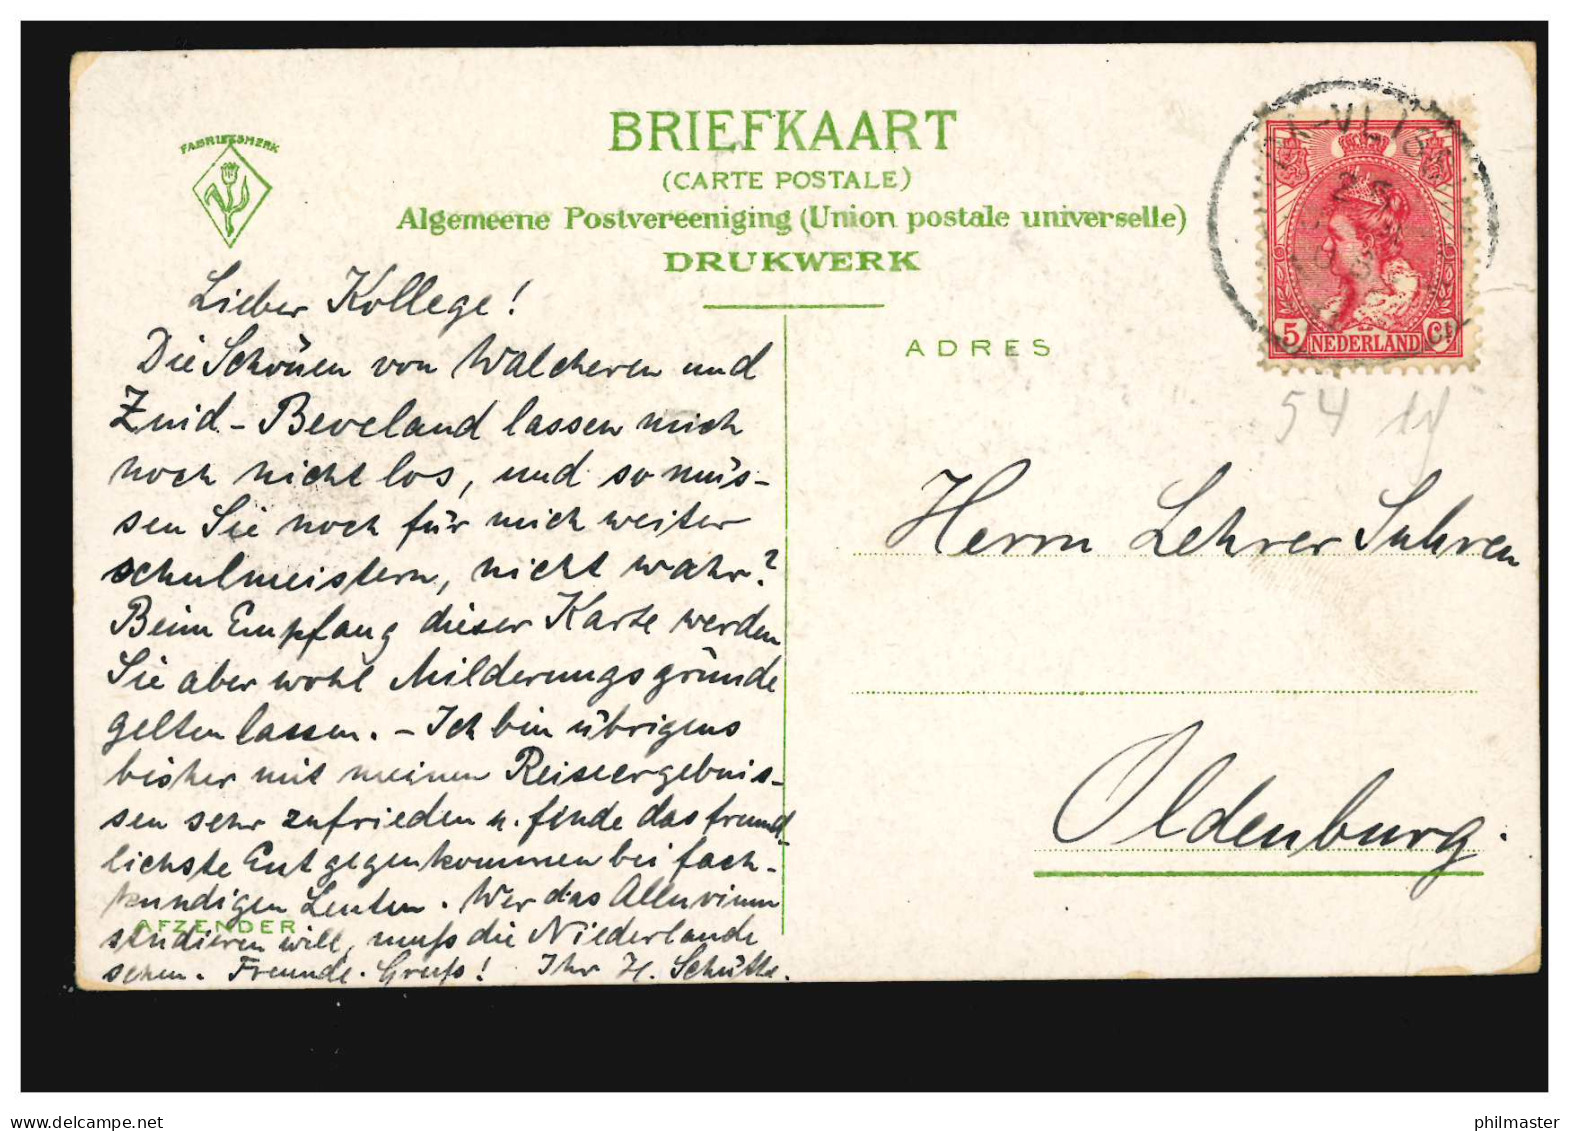 FABRIEKSMERK
BRIEFKAART
(CARTE POSTALE)
Algemeene Postvereeniging (Union postale universelle)
DRUKWERK
Lieber Kollege!
Die Schönen von Walcheren und
Zuid-Beveland lassen mich
noch nicht los, und so müs-
sen Sie noch für mich weiter
schulmeistern, nicht wahr?
Beim Empfang dieser Karte werden
Sie aber wohl Milderungsgründe
gelten lassen. - Ich bin übrigens
bisher mit meinen Reiseergebnis-
sen sehr zufrieden u. finde das freund-
lichste Entgegenkommen bei fach-
kundigen Leuten. Wer das Alluvium
studieren will, muß die Niederlande
sehen. Freundl. Gruß! Ihr H. Schütte.
AFZENDER
ADRES
5 NEDERLAND Ct
54
Herrn Lehrer Suhren
Oldenburg.
oldthing.net
philmaster